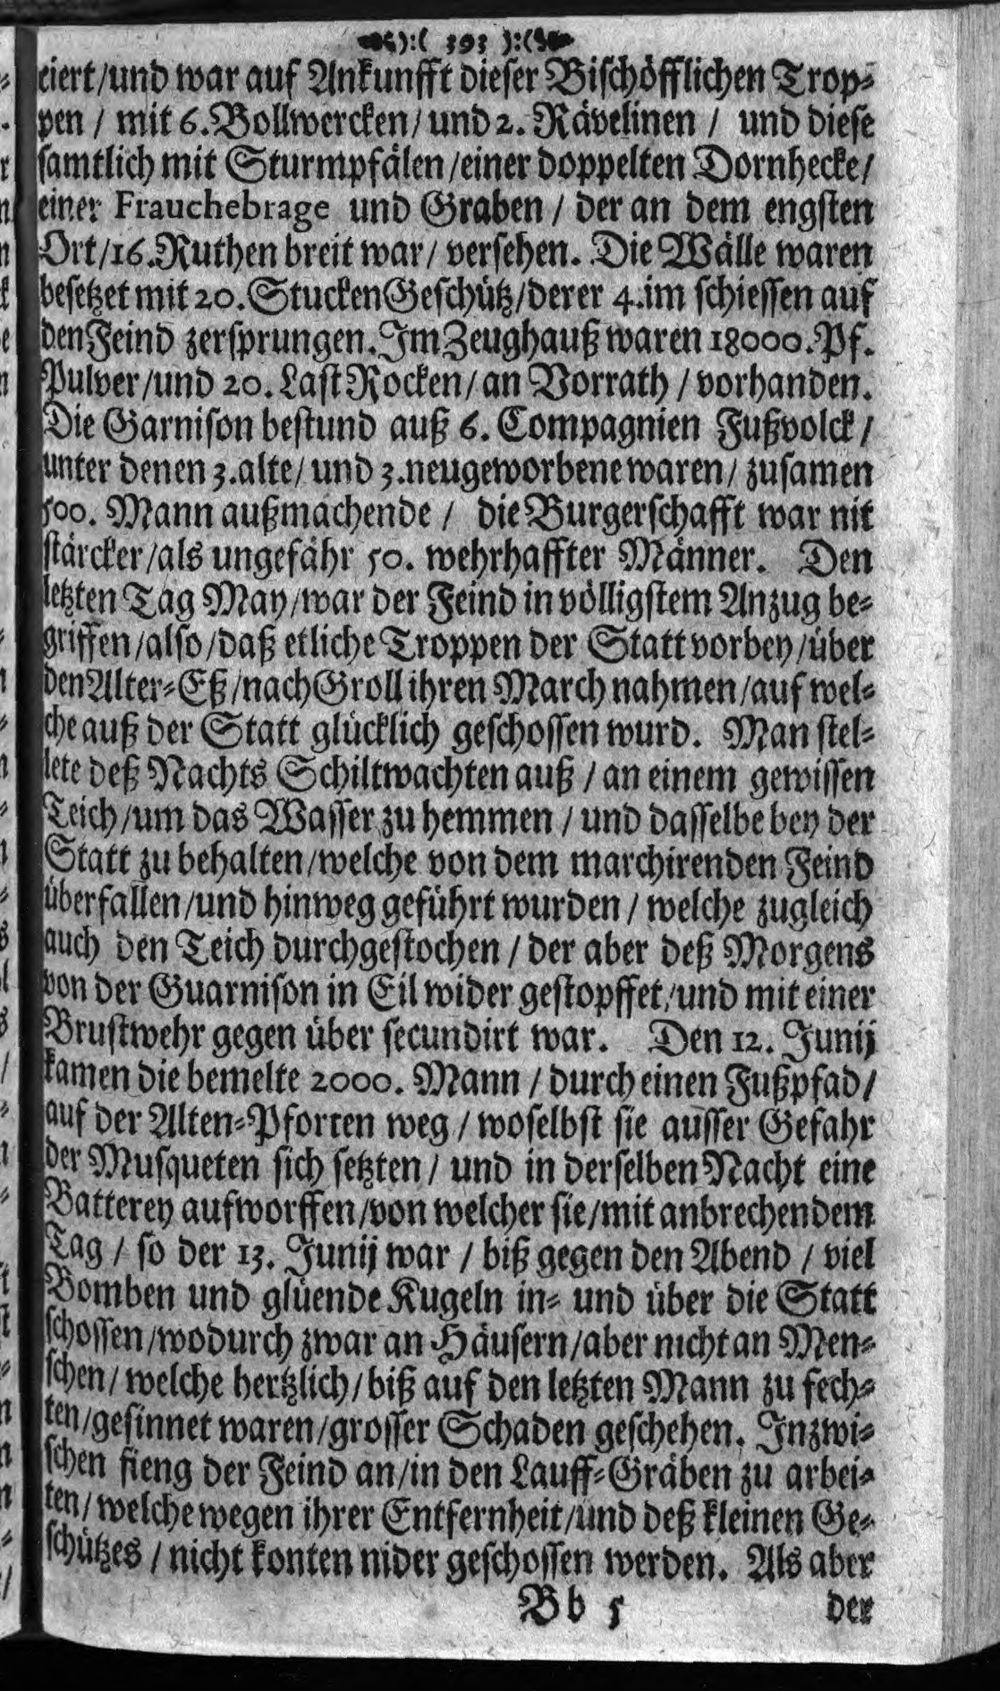 ):( 393 ):(
ciert/und war auf Ankunfft dieser Bischöfflichen Trop-
pen / mit 6. Bollwercken/ und 2. Rävelinen / und diese
samtlich mit Sturmpfälen/einer doppelten Dornhecke/
einer Frauchebrage und Graben / der an dem engsten
Ort/16. Ruthen breit war/ versehen. Die Wälle waren
besetzet mit 20. Stucken Geschütz/derer 4. im schiessen auf
den Feind zersprungen. Im Zeughauß waren 18000. Pf.
Pulver/und 20. Last Rocken/ an Vorrath / vorhanden.
Die Garnison bestund auß 6. Compagnien Fußvolck /
unter denen 3. alte/ und 3. neugeworbene waren/ zusamen
500. Mann außmachende / die Burgerschafft war nit
stärcker/als ungefähr 50. wehrhaffter Männer. Den
letzten Tag May/war der Feind in völligstem Anzug be-
griffen/also/daß etliche Troppen der Statt vorbey/über
den Alter-Eß/nach Groll ihren March nahmen/auf wel-
che auß der Statt glücklich geschossen wurd. Man stel-
lete deß Nachts Schiltwachten auß / an einem gewissen
Teich/um das Wasser zu hemmen / und dasselbe bey der
Statt zu behalten/welche von dem marchirenden Feind
überfallen/und hinweg geführt wurden / welche zugleich
auch den Teich durchgestochen / der aber deß Morgens
von der Guarnison in Eil wider gestopffet/und mit einer
Brustwehr gegen über secundirt war. Den 12. Junij
kamen die bemelte 2000. Mann / durch einen Fußpfad/
auf der Alten-Pforten weg / woselbst sie ausser Gefahr
der Musqueten sich setzten/ und in derselben Nacht eine
Batterey aufworffen/von welcher sie/mit anbrechendem
Tag / so der 13. Junij war / biß gegen den Abend / viel
Bomben und glüende Kugeln in- und über die Statt
schossen/wodurch zwar an Häusern/aber nicht an Men-
schen/ welche hertzlich/ biß auf den letzten Mann zu fech-
ten/gesinnet waren/grosser Schaden geschehen. Inzwi-
schen fieng der Feind an/in den Lauff-Gräben zu arbei-
ten/ welche wegen ihrer Entfernheit/und deß kleinen Ge-
schützes / nicht konten nider geschossen werden. Als aber
Bb 5 der